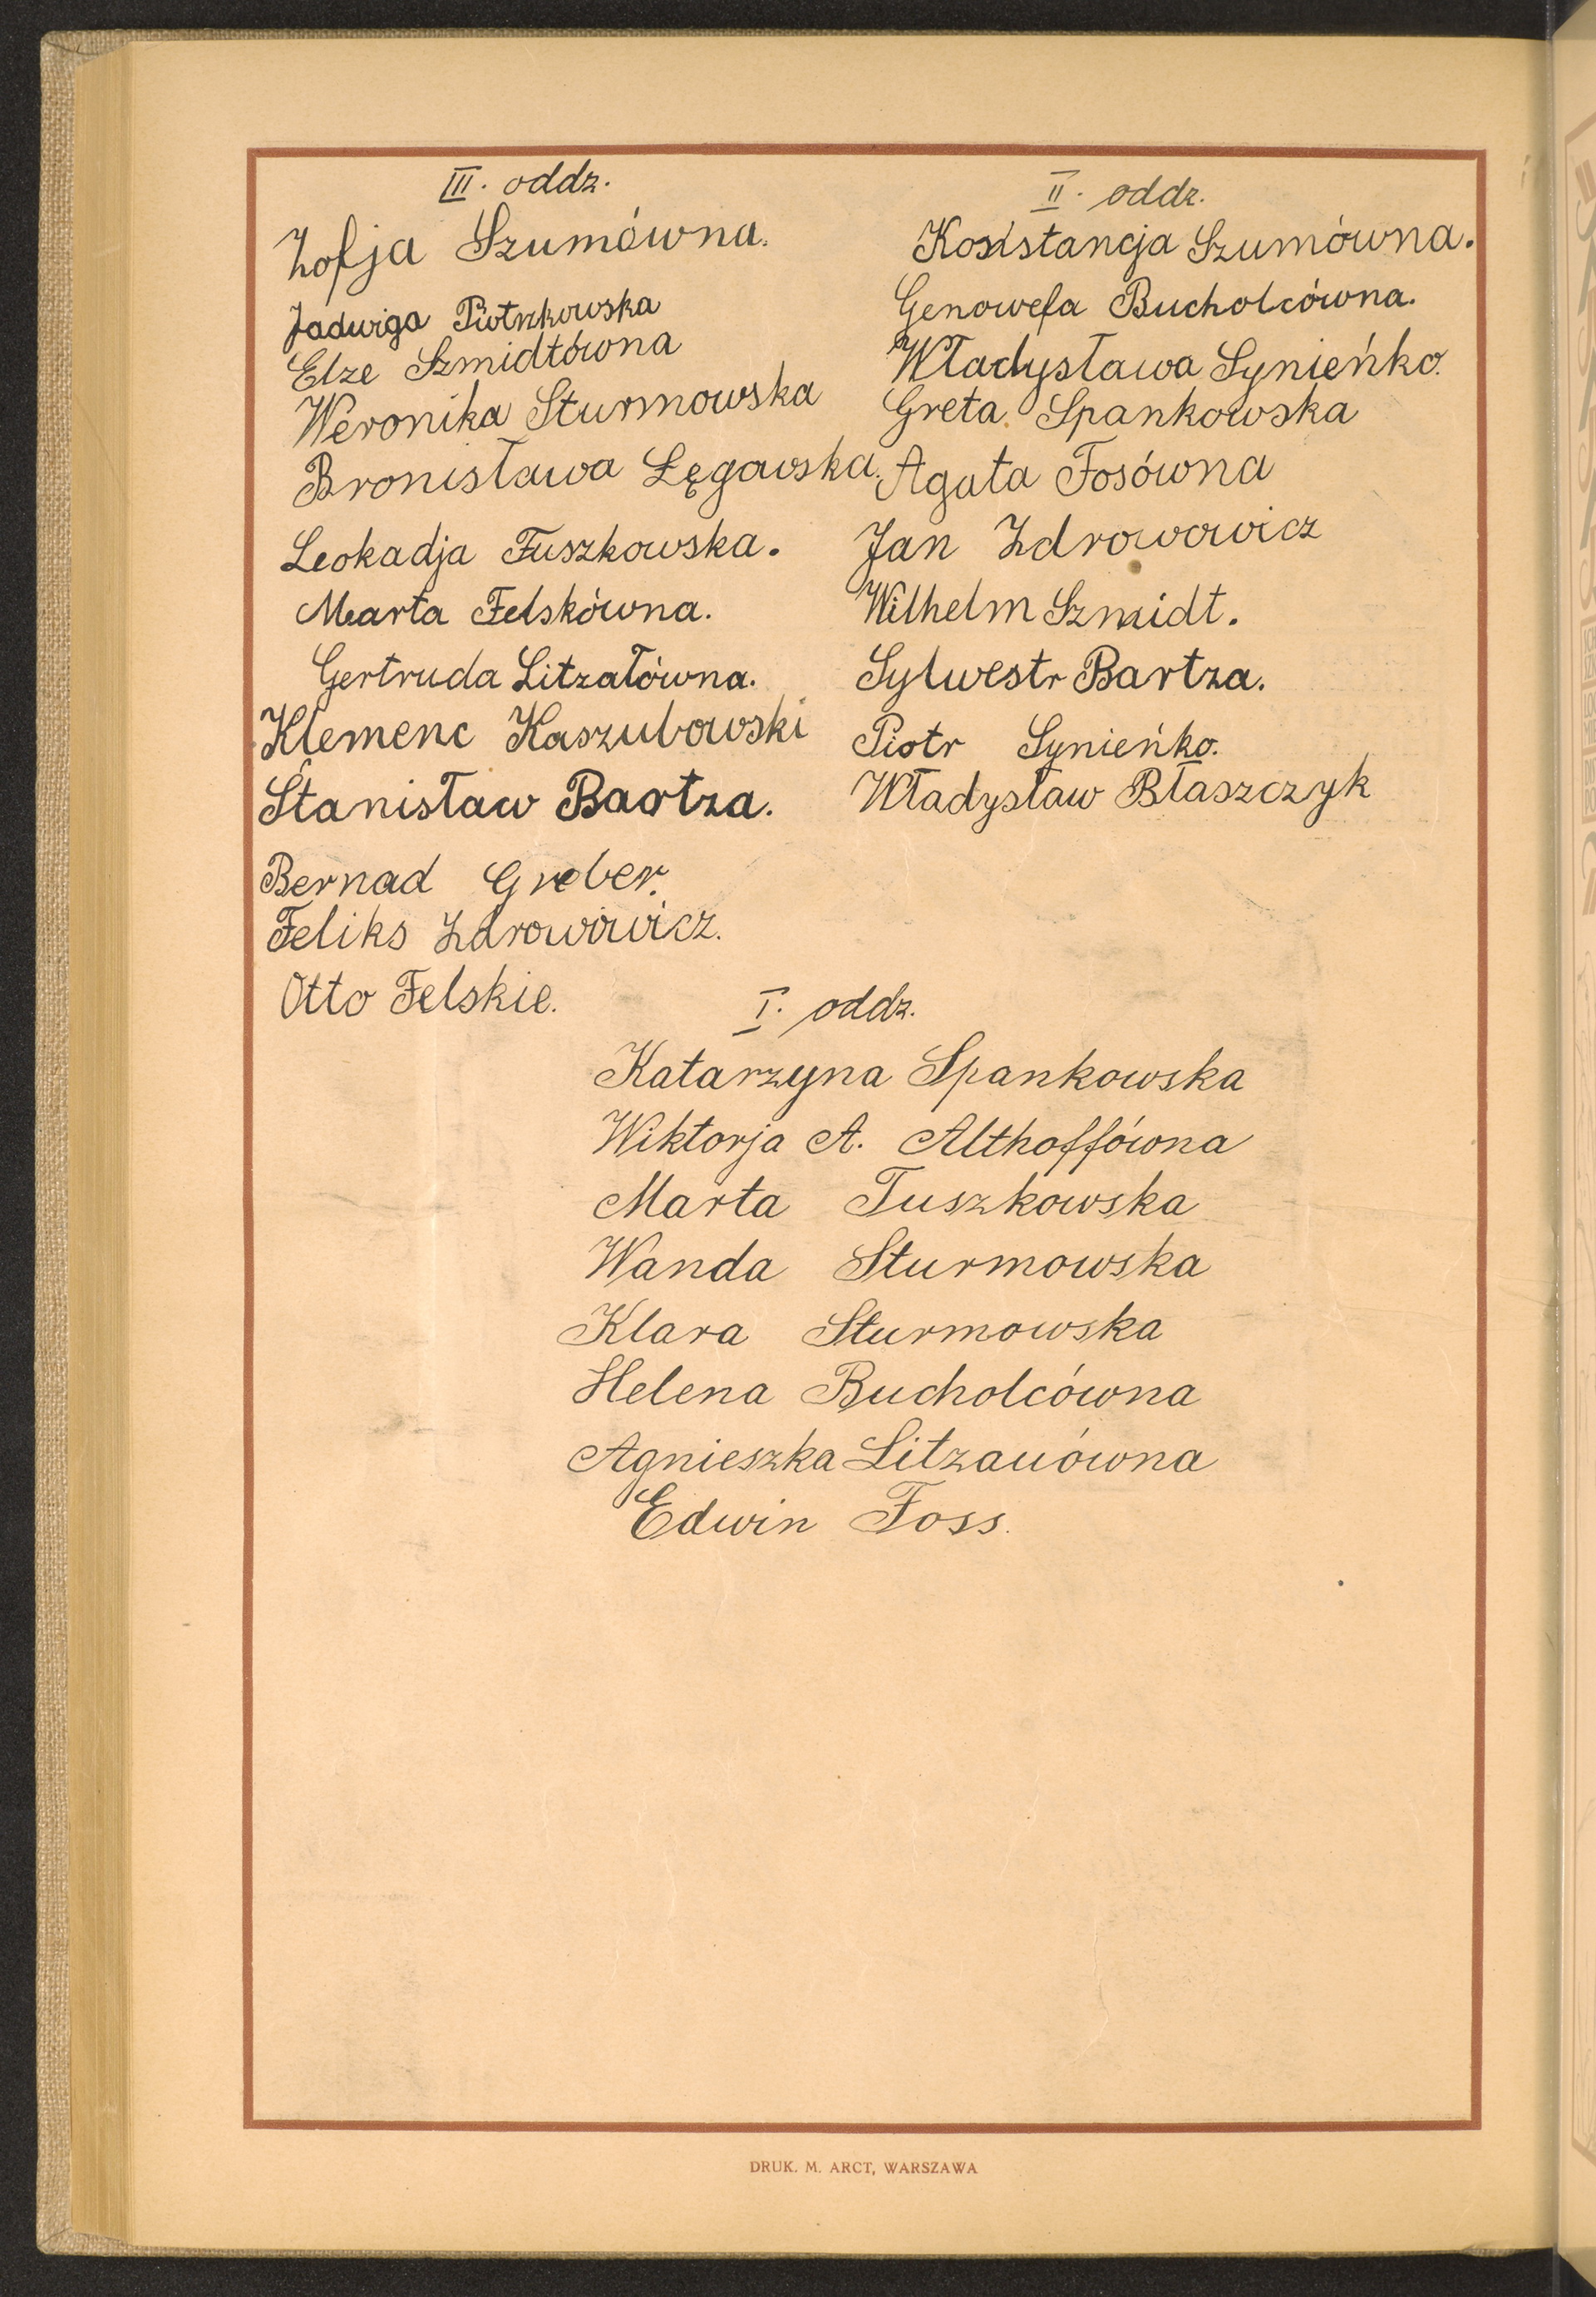 III. oddz.
Zofja Szumówna.
Jadwiga Piotrzkowska
Elze Szmidtówna
Weronika Sturmowska
Bronisława Łęgowska.
Leokadja Fuszkowska.
Marta Felskówna.
Gertruda Litzałówna.
Klemenc Kaszubowski
Stanisław Bartza.
Bernad Greber.
Feliks Zdrowowicz.
Otto Felskie.
II. oddz.
Konstancja Szumówna.
Genowefa Bucholcówna.
Władysława Synieńko.
Greta Spankowska
Agata Fosówna
Jan Zdrowowicz
Wilhelm Szmidt.
Sylwestr Bartza.
Piotr Synieńko.
Władysław Błaszczyk
I. oddz.
Katarzyna Spankowska
Wiktorja A. Althoffówna
Marta Tuszkowska
Wanda Sturmowska
Klara Sturmowska
Helena Bucholcówna
Agnieszka Litzauówna
Edwin Foss.
DRUK. M. ARCT, WARSZAWA